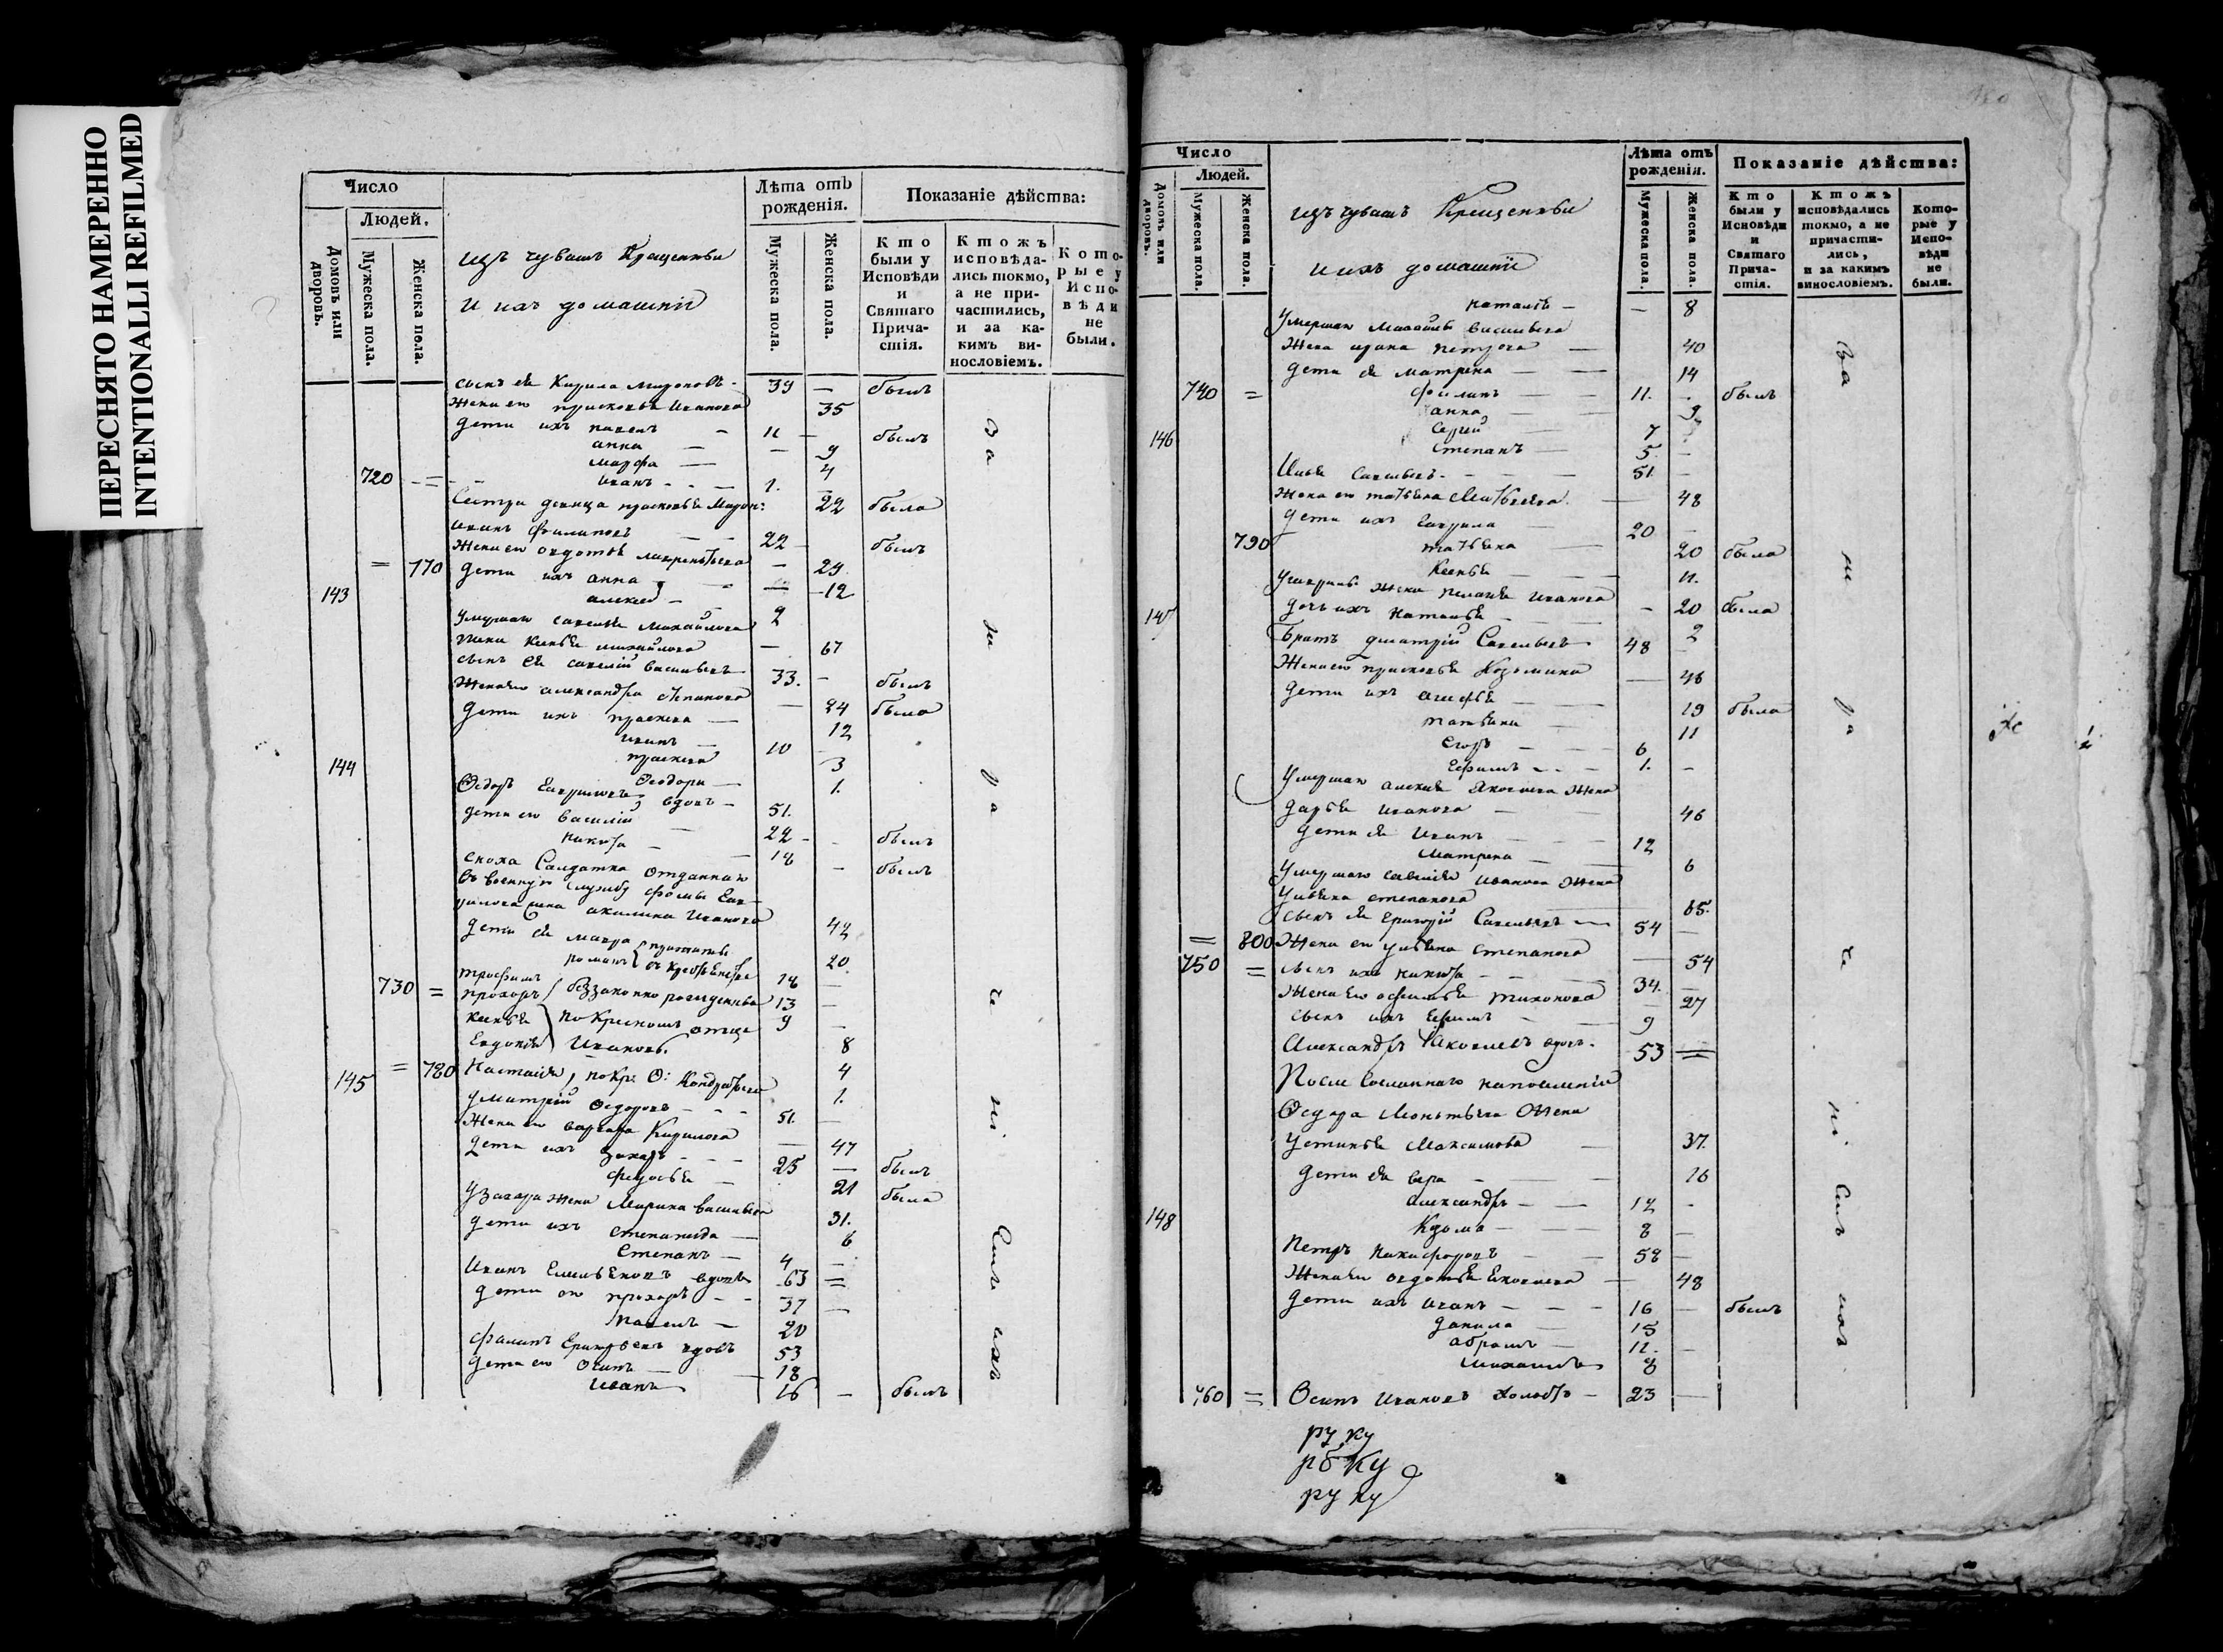 ПЕРЕСНЯТО НАМЕРЕННО
INTENTIONALLI REFILMED
Число
Людей.
Домовъ или дворовъ.
Мужеска пола.
Женска пола.
изъ чувашъ Крещенныи
и ихъ домашніи
Лѣта отъ рожденія.
Мужеска пола.
Женска пола.
Показаніе дѣйства:
Кто были у Исповѣди и Святаго Причастія.
Ктожъ исповѣдались токмо, а не причастились, и за какимъ винословіемъ.
Которые у Исповѣди не были.
сынъ ея Кирила Мироновъ - 39 — былъ
Жена его прасковья Иванова 35
дети ихъ павелъ - 11 — былъ
анна — — 9
марфа — 4
720 = иванъ - - — 1.
Сестра девица прасковья Мирон: 22 была
иванъ филиповъ — — 22 — былъ
= 170 Жена его авдотья лаврентьева — 29
дети ихъ анна — — 12
143 алексей - — 2
умершаго савелья Михайлова
жена ксенья михайлова — 67
сынъ ея савелій васильевъ 33. - былъ
Жена его александра степанова — 24 была
дети ихъ праскева — 12
иванъ — 10
праскева 3
144 Ѳеодора — 1.
Ѳедоръ Гавриловъ вдовъ — 51.
дети его василій — 22 - - былъ
никита — — 18 — былъ
сноха Салдатка отданнаго
въ военную службу фомы Гав-
рилова жена акилина Иванова 42
дети ея мавра 20
романъ 18 —
730 = трофимъ 13 —
прохоръ беззаконно рожденныя 9 —
ксенья по Крестномъ отце 8
Евдокія Ивановы. 4
145 = 780 Настасія, по Кр: О: Кондратьева 1.
дмитрій Ѳедоровъ - - - 51. —
Жена его варвара Кирилова — 47
дети ихъ захаръ - - - 25 — былъ
федосья — 21 была
у захара жена Марина васильева 31.
дети ихъ степанида — 6
Степанъ — 4 —
Иванъ Емельяновъ вдовъ 63 =
дети его прохоръ - - 37 —
павелъ — 20
филипъ Григорьевъ вдовъ 53
дети его Осипъ — — 18
Иванъ 16 — былъ
За
ма
ра
че
ні
емъ
ихъ
Число
Людей.
Домовъ или дворовъ.
Мужеска пола.
Женска пола.
изъ чувашъ Крещенныи
и ихъ домашніи
Лѣта отъ рожденія.
Мужеска пола.
Женска пола.
Показаніе дѣйства:
Кто были у Исповѣди и Святаго Причастія.
Ктожъ исповѣдались токмо, а не причастились, и за какимъ винословіемъ.
Которые у Исповѣди не были.
наталья — — 8
Умершаго Михайлы васильева
Жена ирина петрова — 40
дети ея матрена — — 14
740 = филипъ — — 11. . былъ
анна — — 9
146 Сергей — 7
Степанъ — 5. —
Илья Савельевъ. - — — 51. —
Жена его татьяна Матвеева. — 48
дети ихъ гаврила — 20 —
790 татьяна — 20 была
Ксенья — — 11.
У гаврилы жена пелагея Иванова — 20 была
147 дочь ихъ наталья — — 2
Братъ дмитрій Савельевъ 48 —
Жена его прасковья Козьмина — 46
дети ихъ агафья — — 19 была
татьяна — 11
Егоръ — — 6
Ефимъ - . — 1. —
Умершаго алексея Яковлева Жена
дарья иванова — 46
дети ея иванъ — — 12
Матрена — — 6
Умершаго савелья иванова Жена
Ульяна степанова — 65.
сынъ ея григорій Савельевъ — 54 —
= 800 Жена его ульяна степанова — 54
750 = сынъ ихъ никита — — 34. —
Жена его офимья тихонова — 27
сынъ ихъ Ефимъ — — 9
Александръ Яковлевъ вдовъ. 53 =
После Сосланнаго на поселеніе
Ѳедора Жена
Устинья Максимова — 37.
дети ея вера — — 16
александръ — — 12 -
148 Козьма — — 8 —
Петръ Никифоровъ — — 58 —
Жена его авдотья Яковлева — 48
дети ихъ иванъ — — - 16 — былъ
данила — 15
абрамъ — 11. —
михаилъ 8
760 = Осипъ Ивановъ холостъ — 23 —
За
ма
ра
че
ні
емъ
ихъ
руку
рбку
руку